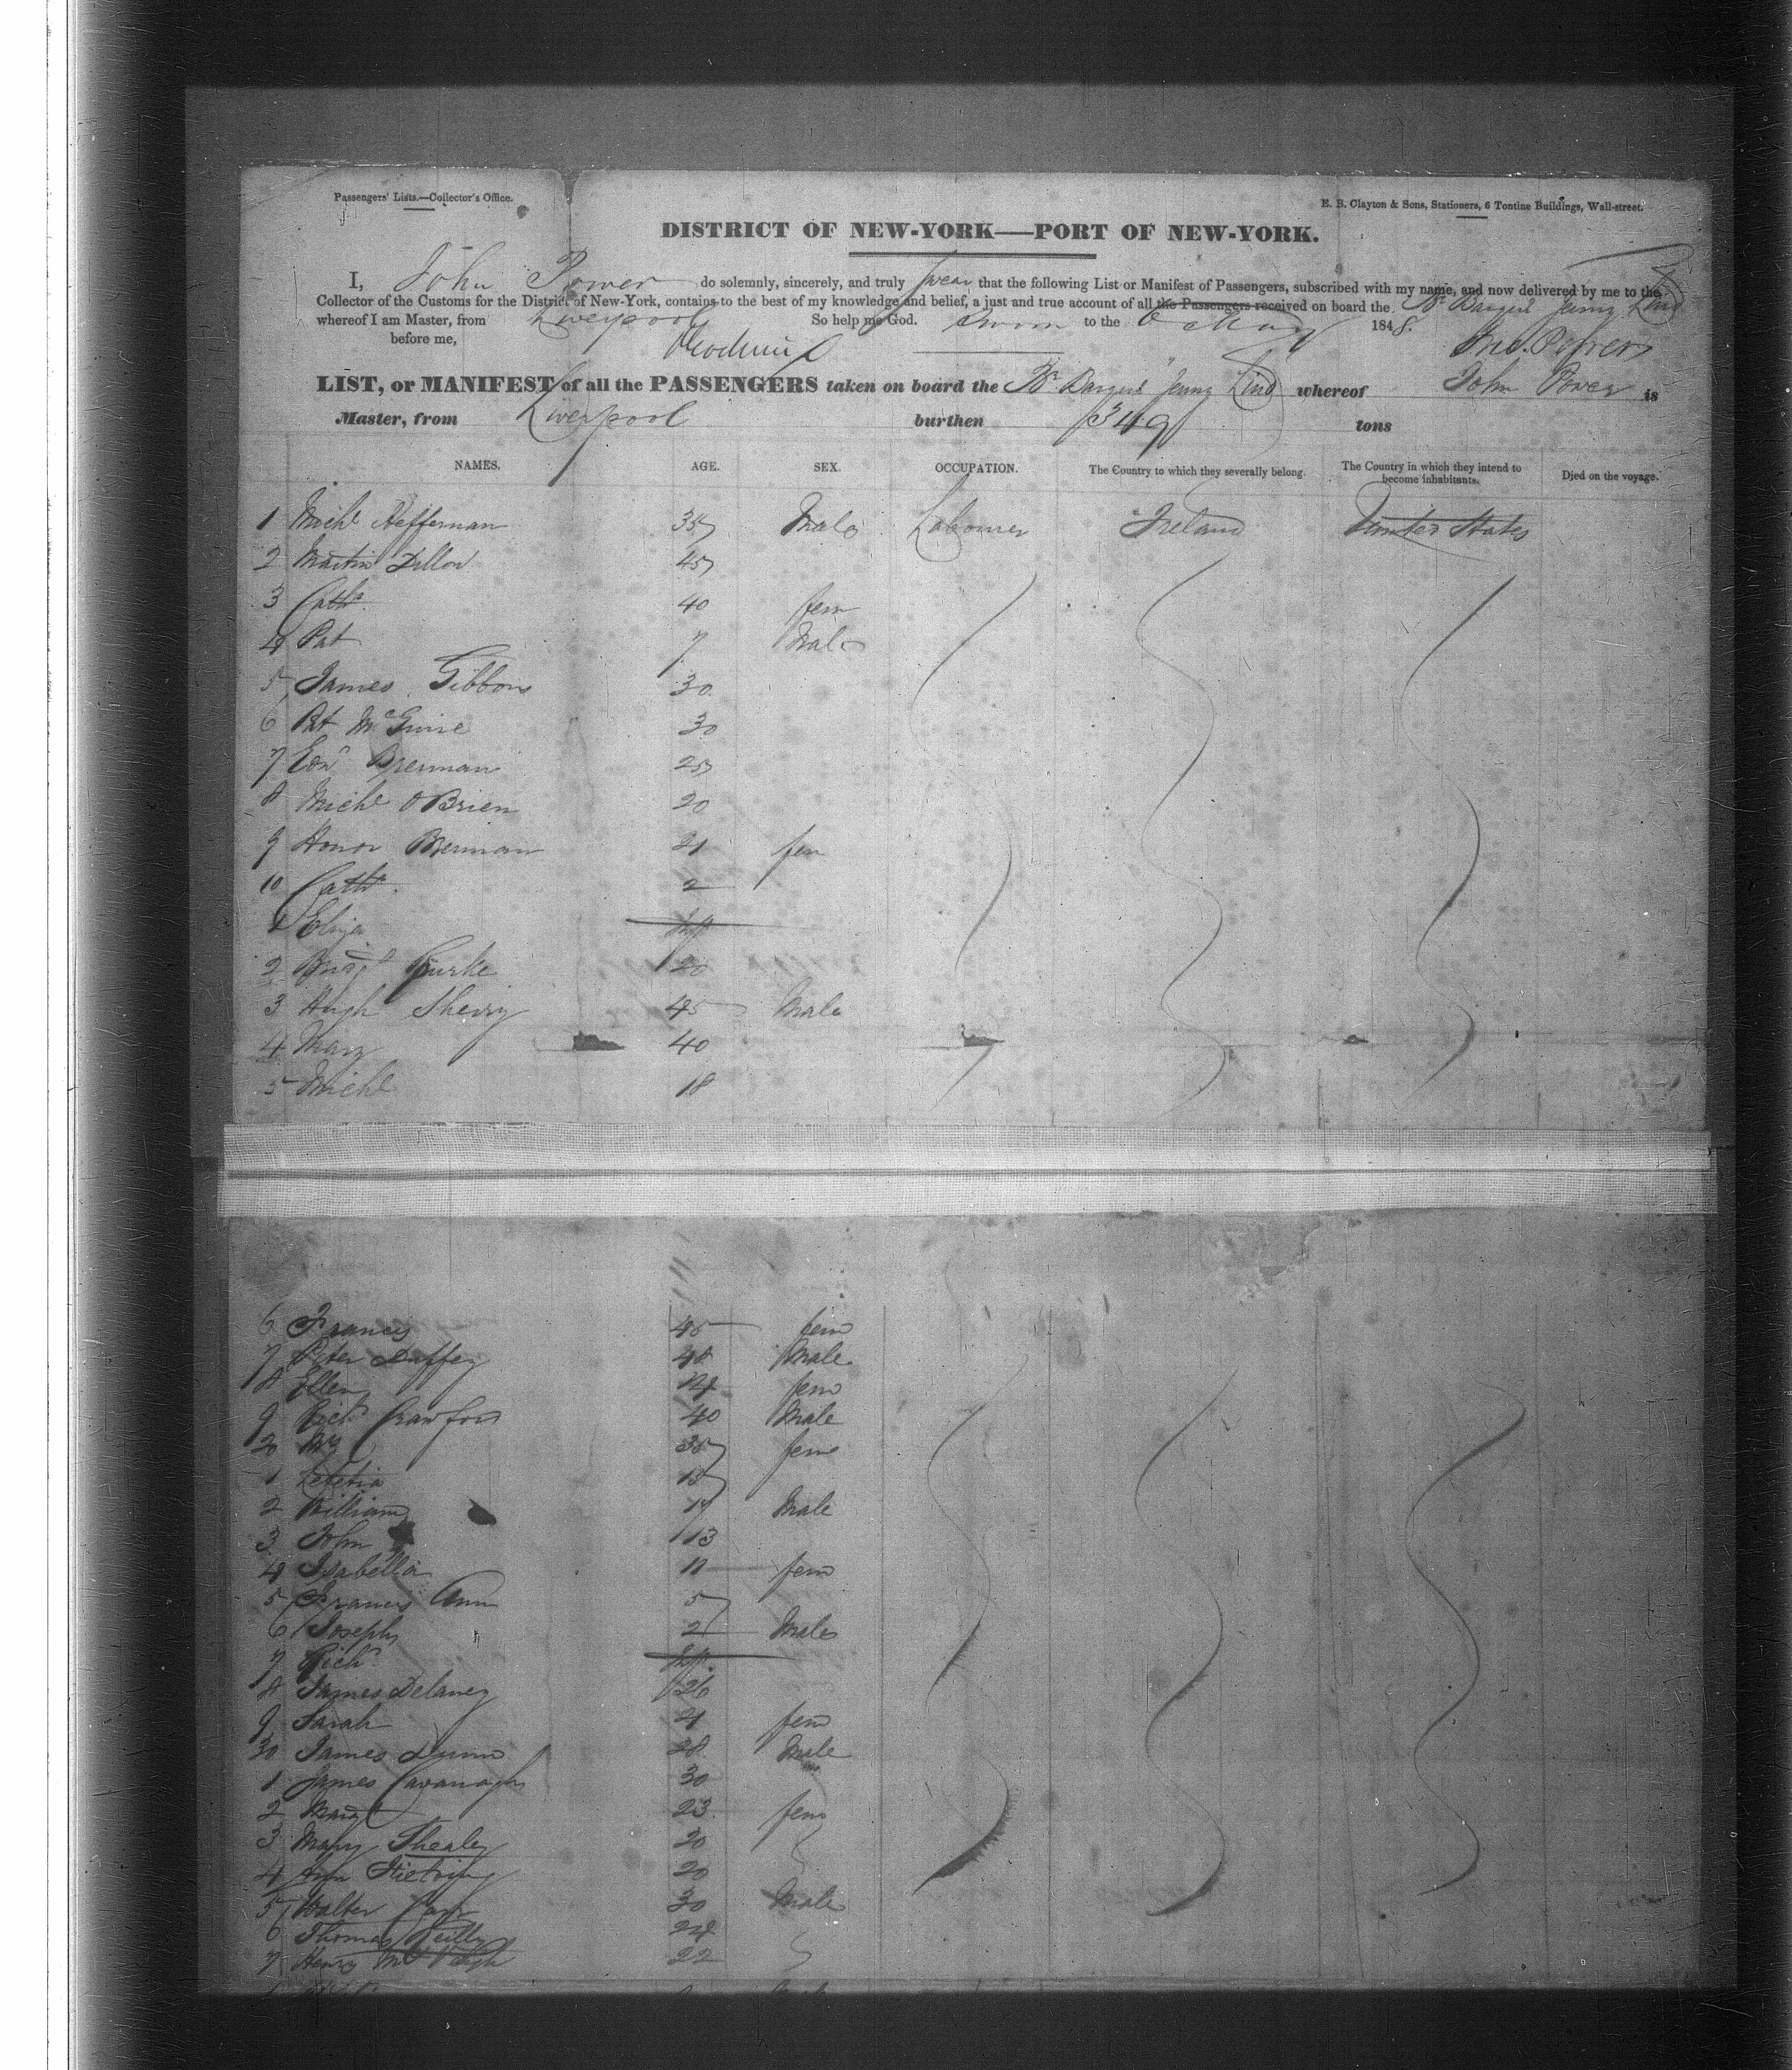 Passengers' Lists.—Collector's Office.
E. B. Clayton & Sons, Stationers, 6 Tontine Buildings, Wall-street.
DISTRICT OF NEW-YORK—PORT OF NEW-YORK.
I, John Power do solemnly, sincerely, and truly swear that the following List or Manifest of Passengers, subscribed with my name, and now delivered by me to the
Collector of the Customs for the District of New-York, contains to the best of my knowledge and belief, a just and true account of all the Passengers received on board the Br Barque Jenny Lind
whereof I am Master, from Liverpool So help me God. Sworn to the 6 May 1848.
before me, Jno. Power
LIST, or MANIFEST of all the PASSENGERS taken on board the Br Barque "Jenny Lind whereof John Power is
Master, from Liverpool burthen 349 tons
NAMES. AGE. SEX. OCCUPATION. The Country to which they severally belong. The Country in which they intend to become inhabitants. Died on the voyage.
1 Michl Heffernan 35 Male Labourer Ireland United States
2 Martin Dillon 45
3 Cathe 40 fem
4 Pat 7 Male
5 James Gibbons 30
6 Pat McGuire 30
7 Edwd Brennan 25
8 Michl OBrien 20
9 Honor Brennan 21 fem
10 Cathe 2
1 Eliza Inft
2 Margt Burke 20
3 Hugh Sherry 45 Male
4 Mary 40
5 Michl 18
6 Francis 45 fem
7 Peter Duffey 48 Male
8 Ellen 14 fem
9 Richd Crawford 40 Male
20 My 35 fem
1 Letetia 15
2 William 17 Male
3 John 13
4 Isabella 11 fem
5 Francis Ann 5
6 Joseph 2 Male
7 Richd Inft
8 James Delaney 26
9 Sarah 21 fem
30 James Dunn 28 Male
1 James Cavanagh 30
2 Margt 23 fem
3 Mary Shealey 20
4 Ann 20
5 Walter Carr 30 Male
6 Thomas Reilly 24
7 Henry 22